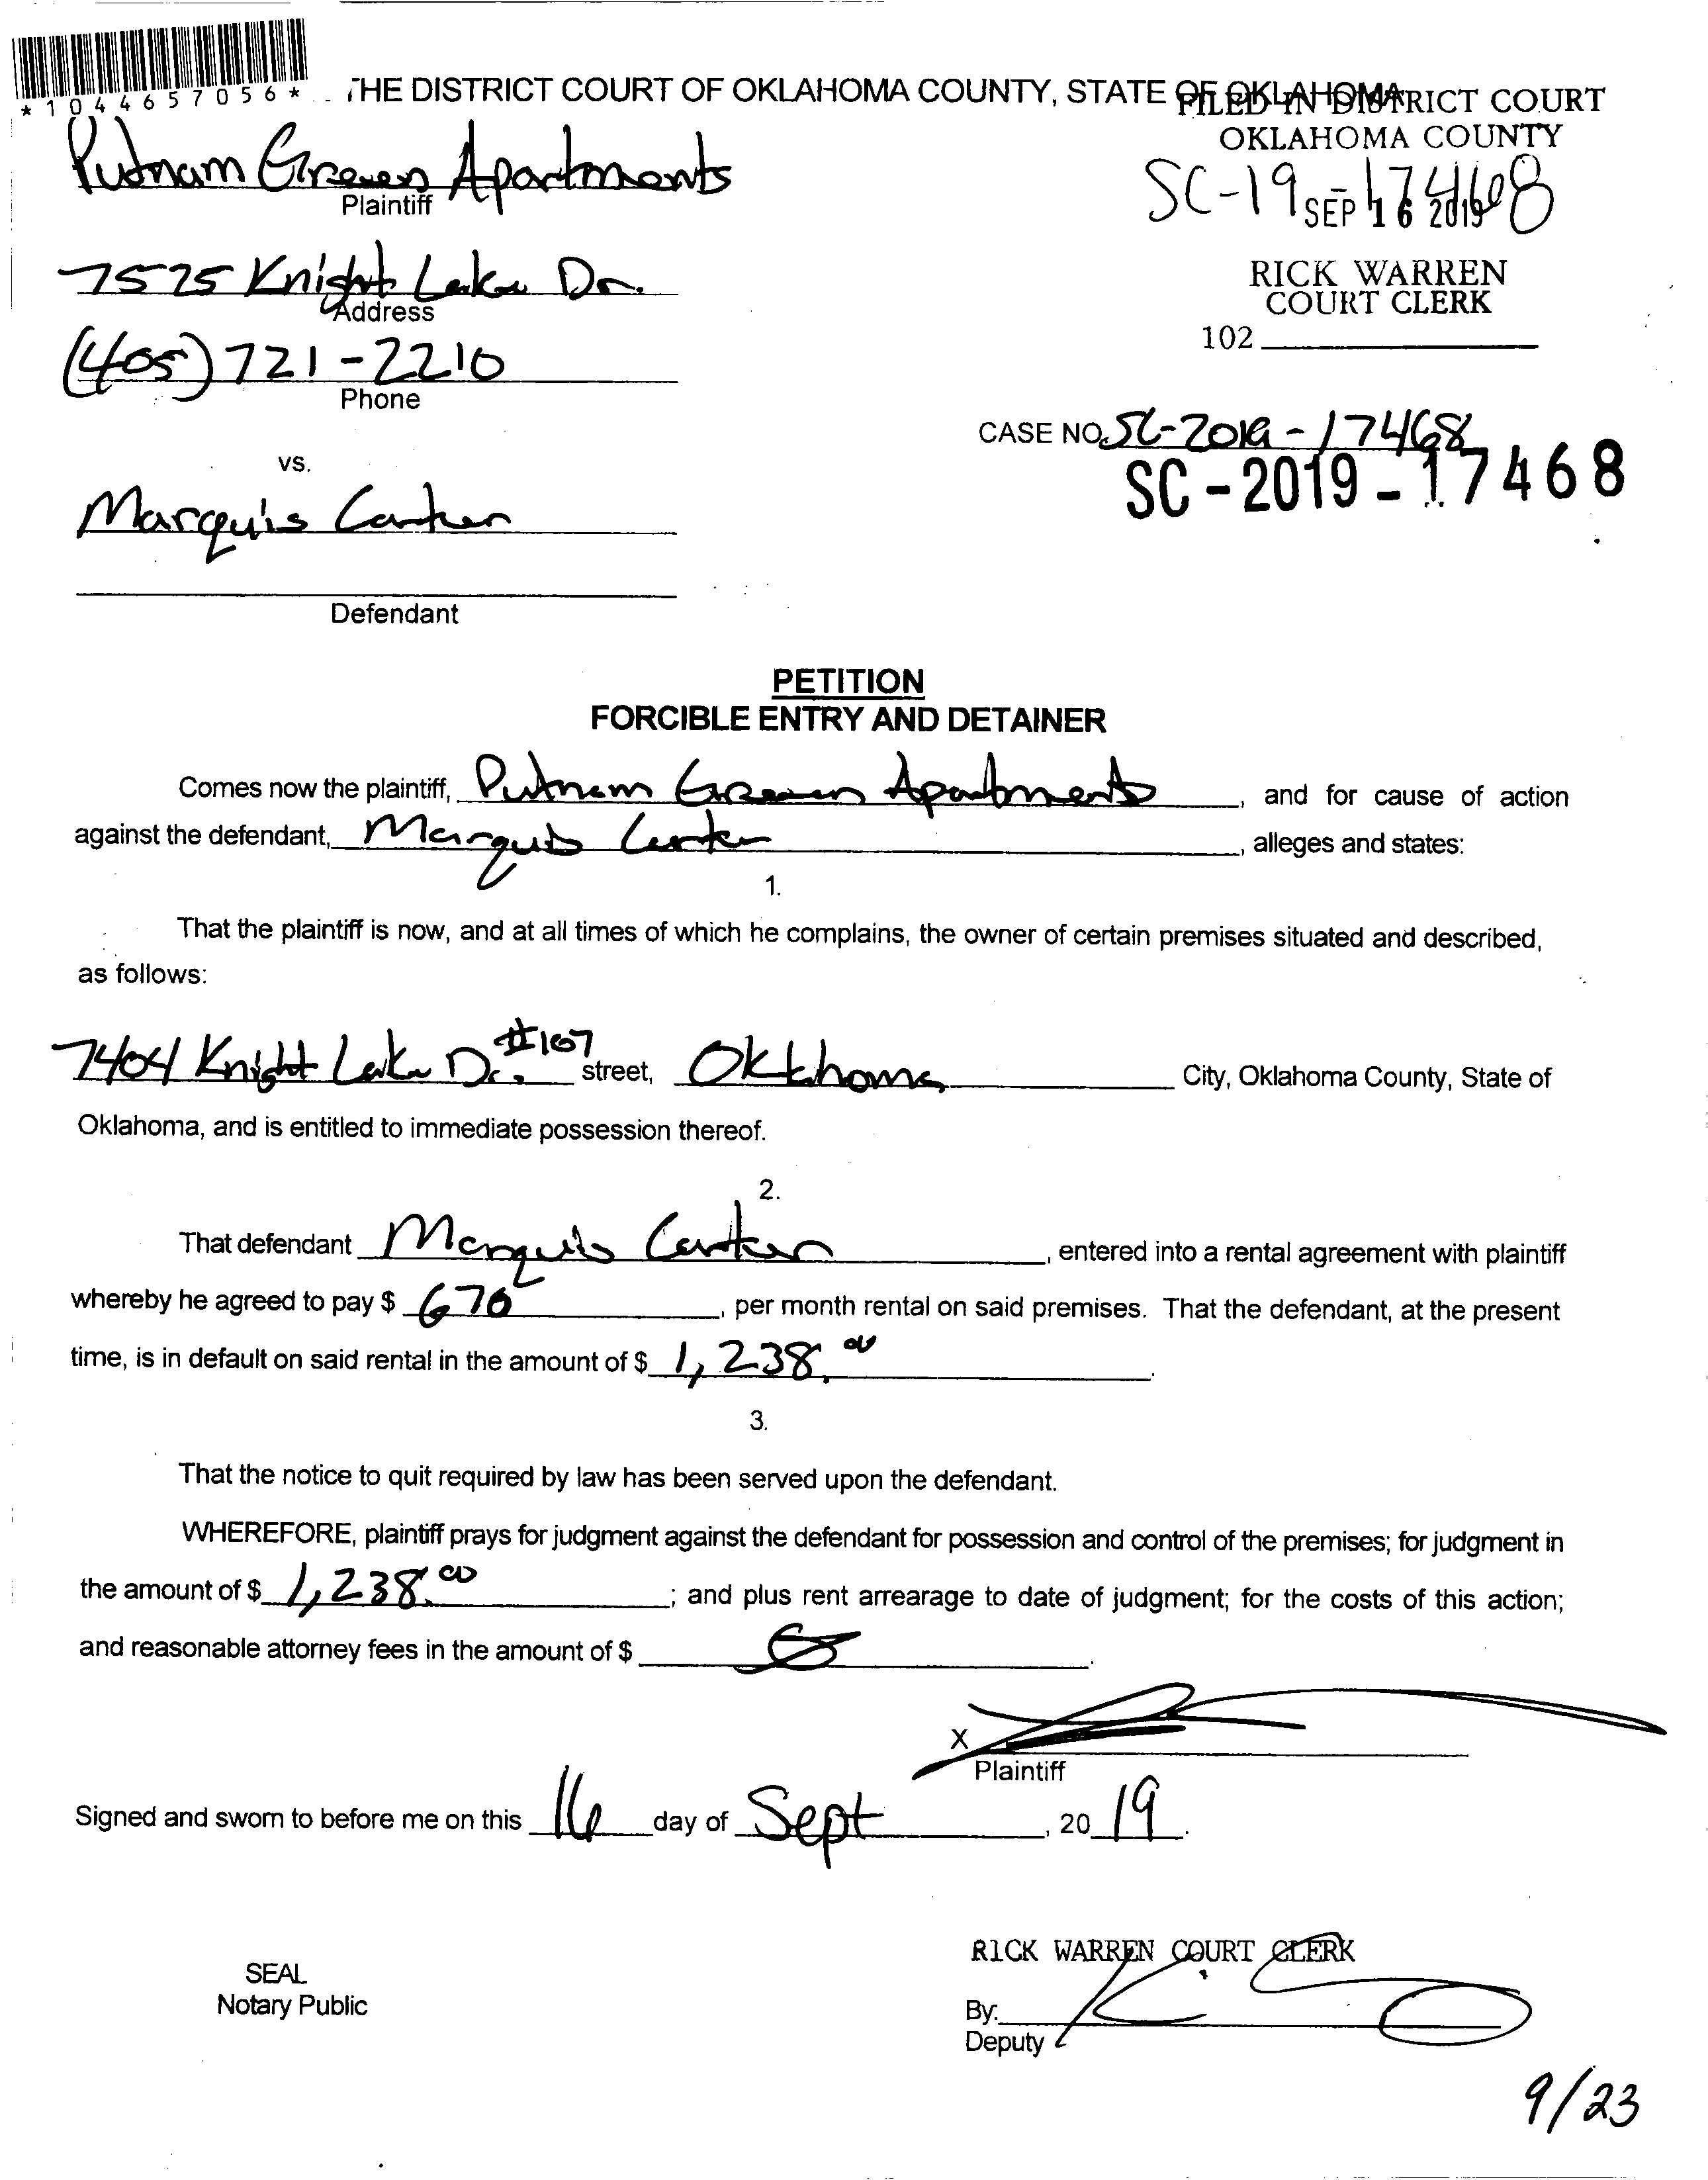 *1044657056*
THE DISTRICT COURT OF OKLAHOMA COUNTY, STATE OF OKLAHOMA
FILED IN DISTRICT COURT
OKLAHOMA COUNTY
Putnam Green Apartments
Plaintiff
SC-19-17468
SEP 16 2019
7525 Knight Lake Dr.
Address
RICK WARREN
COURT CLERK
102
(405) 721-2210
Phone
CASE NO. SC-2019-17468
SC-2019-17468
vs.
Marquis Carter
Defendant
PETITION
FORCIBLE ENTRY AND DETAINER
Comes now the plaintiff, Putnam Green Apartments, and for cause of action
against the defendant, Marquis Carter, alleges and states:
1.
That the plaintiff is now, and at all times of which he complains, the owner of certain premises situated and described,
as follows:
7404 Knight Lake Dr. #107 street, Oklahoma City, Oklahoma County, State of
Oklahoma, and is entitled to immediate possession thereof.
2.
That defendant Marquis Carter, entered into a rental agreement with plaintiff
whereby he agreed to pay $ 670, per month rental on said premises. That the defendant, at the present
time, is in default on said rental in the amount of $ 1,238.00.
3.
That the notice to quit required by law has been served upon the defendant.
WHEREFORE, plaintiff prays for judgment against the defendant for possession and control of the premises; for judgment in
the amount of $ 1,238.00; and plus rent arrearage to date of judgment; for the costs of this action;
and reasonable attorney fees in the amount of $ 0.
X
Plaintiff
Signed and sworn to before me on this 16 day of Sept, 2019.
RICK WARREN COURT CLERK
SEAL
Notary Public
By:
Deputy
9/23